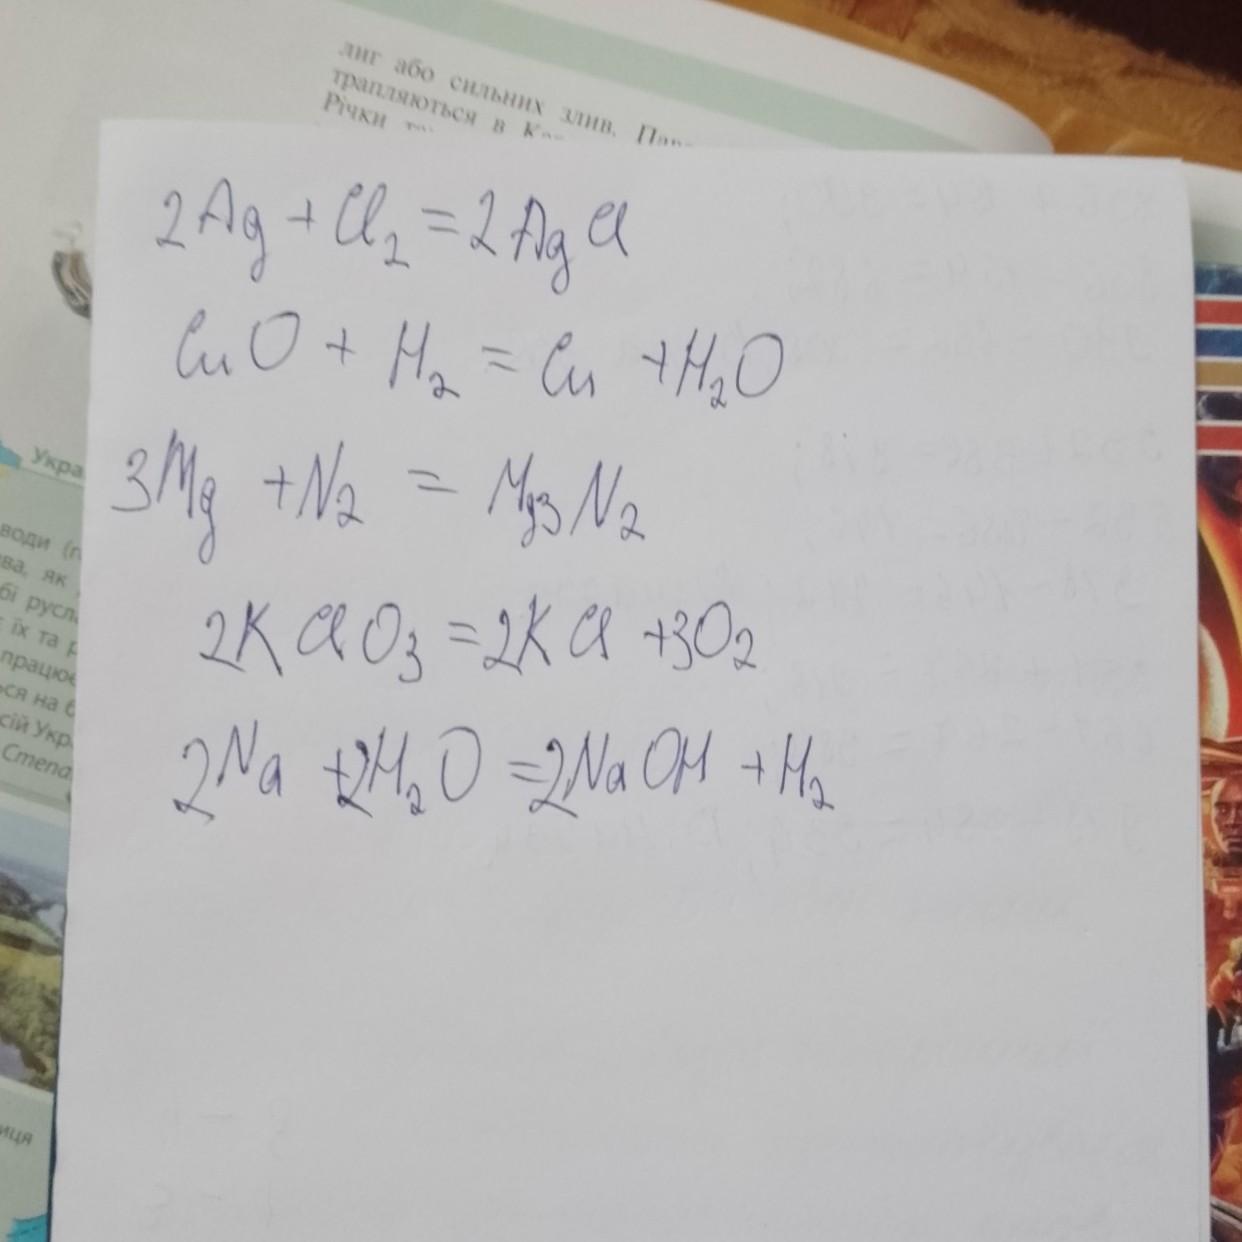 лиг або сильних злив.
трапляються в
Річки
2Ag + Cl₂ = 2AgCl
CuO + H₂ = Cu + H₂O
3Mg + N₂ = Mg₃N₂
2KClO₃ = 2KCl + 3O₂
2Na + 2H₂O = 2NaOH + H₂
Укра
води
ва, як
бі русл
їх та р
працює
ся на б
сій Укр
Степа
иця